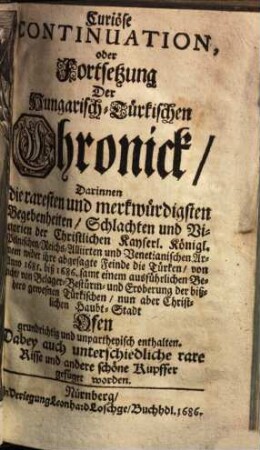 Curiöse
CONTINUATION,
oder
Fortsetzung
Der
Hungarisch-Türkischen
Chronick/
Darinnen
die raresten und merkwürdigsten
Begebenheiten/ Schlachten und Vi-
ctorien der Christlichen Kayserl. Königl.
Polnischen/Reichs-Alliirten und Venetianischen Ar-
meen wider ihre abgesagte Feinde die Türken/ von
Anno 1685. biß 1686. samt einem ausführlichen Be-
richt von Beläger-Bestürm- und Eroberung der biß-
hero gewesenen Türckischen/ nun aber Christ-
lichen Haubt-Stadt
Ofen
grundrichtig und unpartheyisch enthalten.
Dabey auch unterschiedliche rare
Risse und andere schöne Kupffer
gefüget worden.
Nürnberg/
In Verlegung Leonhard Loschge/ Buchhdl. 1686.